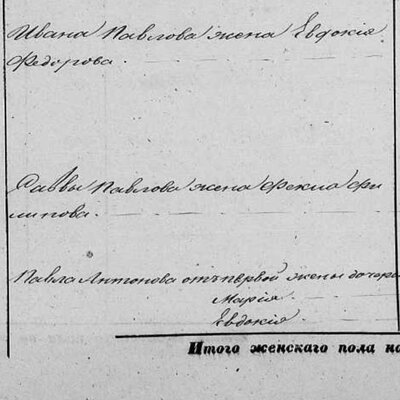 Ивана Павлова жена Евдокія
Федорова.
Саввы Павлова жена Фекла Фи
липова.
Павла Антонова отъ первой жены дочери
Марія
Евдокія
Итого женскаго пола на